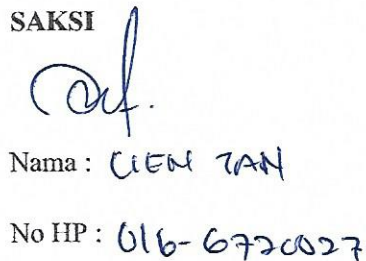 SAKSI
Nama : CIEN TAN
No HP : 016-6720027